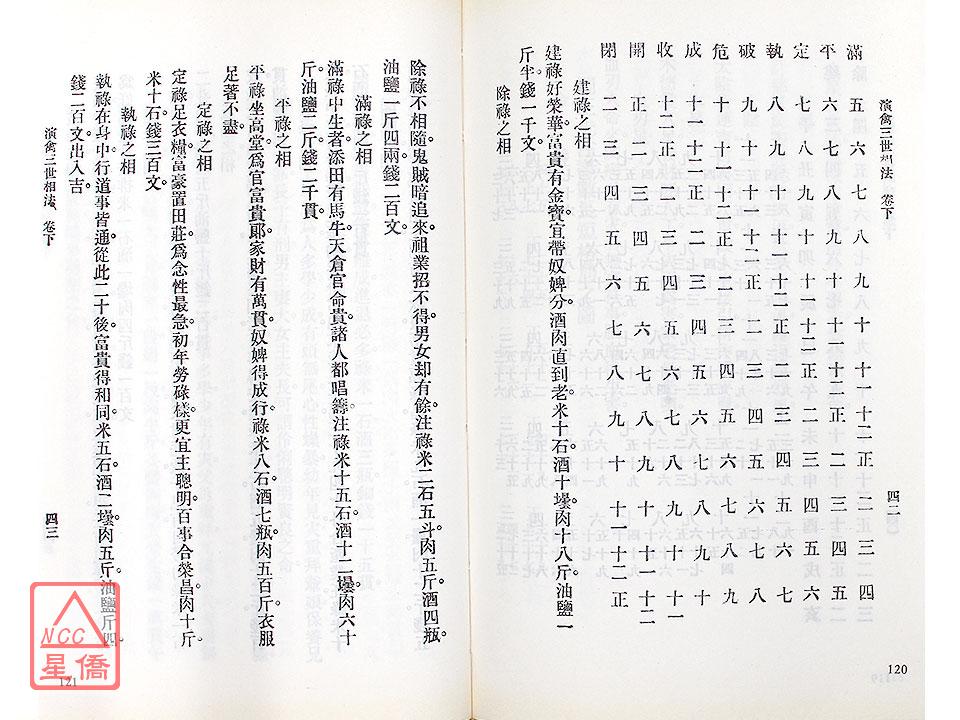 演禽三世相法 卷下 四二
滿 五 六 七 八 九 十 十一 十二 正 二 三 四
平 六 七 八 九 十 十一 十二 正 二 三 四 五
定 七 八 九 十 十一 十二 正 二 三 四 五 六
執 八 九 十 十一 十二 正 二 三 四 五 六 七
破 九 十 十一 十二 正 二 三 四 五 六 七 八
危 十 十一 十二 正 二 三 四 五 六 七 八 九
成 十一 十二 正 二 三 四 五 六 七 八 九 十
收 十二 正 二 三 四 五 六 七 八 九 十 十一
開 正 二 三 四 五 六 七 八 九 十 十一 十二
閉 二 三 四 五 六 七 八 九 十 十一 十二 正
建祿之相
建祿好榮華。富貴有金寶。宜帶奴婢分。酒肉直到老。米十石。酒十壜。肉十八斤。油鹽一
斤半。錢一千文。
除祿之相
120
除祿不相隨。鬼賊暗追來。祖業招不得。男女却有餘。注祿米二石五斗。肉五斤。酒四瓶。
油鹽一斤四兩。錢二百文。
滿祿之相
滿祿中生者。添田有馬牛。天倉官命貴。諸人都唱籌。注祿米十五石。酒十二壜。肉六十
斤。油鹽二斤。錢二千貫。
平祿之相
平祿坐高堂。爲官富貴郎。家財有萬貫。奴婢得成行。祿米八石。酒七瓶。肉五百斤。衣服
足著不盡。
定祿之相
定祿足衣糧。富豪置田莊。爲念性最急。初年勞碌樣。更宜主聰明。百事合榮昌。肉十斤。
米十石。錢三百文。
執祿之相
執祿在身中。行道事皆通。從此二十後。富貴得和同。米五石。酒二壜。肉五斤。油鹽斤四。
錢二百文。出入吉。
演禽三世相法 卷下 四三
121
NCC
星僑